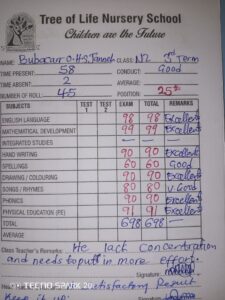 Tree of Life Nursery School
Children are the Future
NAME: Bubacarr O.H.S. Janneh CLASS: N2 3rd Term
TIME PRESENT: 58 CONDUCT: Good
TIME ABSENT? 2
NUMBER OF ROLL: 45 POSITION: 25th
SUBJECTS TEST 1 TEST 2 EXAM TOTAL REMARKS
ENGLISH LANGUAGE 98 98 Excellent
MATHEMATICAL DEVELOPMENT 99 99 Excellent
INTEGRATED STUDIES — — —
HAND WRITING 90 90 Excellent
SPELLINGS 60 60 Good
DRAWING / COLOURING 90 90 Excellent
SONGS / RHYMES 80 80 V. Good
PHONICS 90 90 Excellent
PHYSICAL EDUCATION (PE) 91 91 Excellent
TOTAL 698 698 —
AVERAGE
Class Teacher's Remarks: He lack concentration
and needs to put in more effort.
Signature:
Satisfactory Result
Keep it up
TECNO SPARK 20